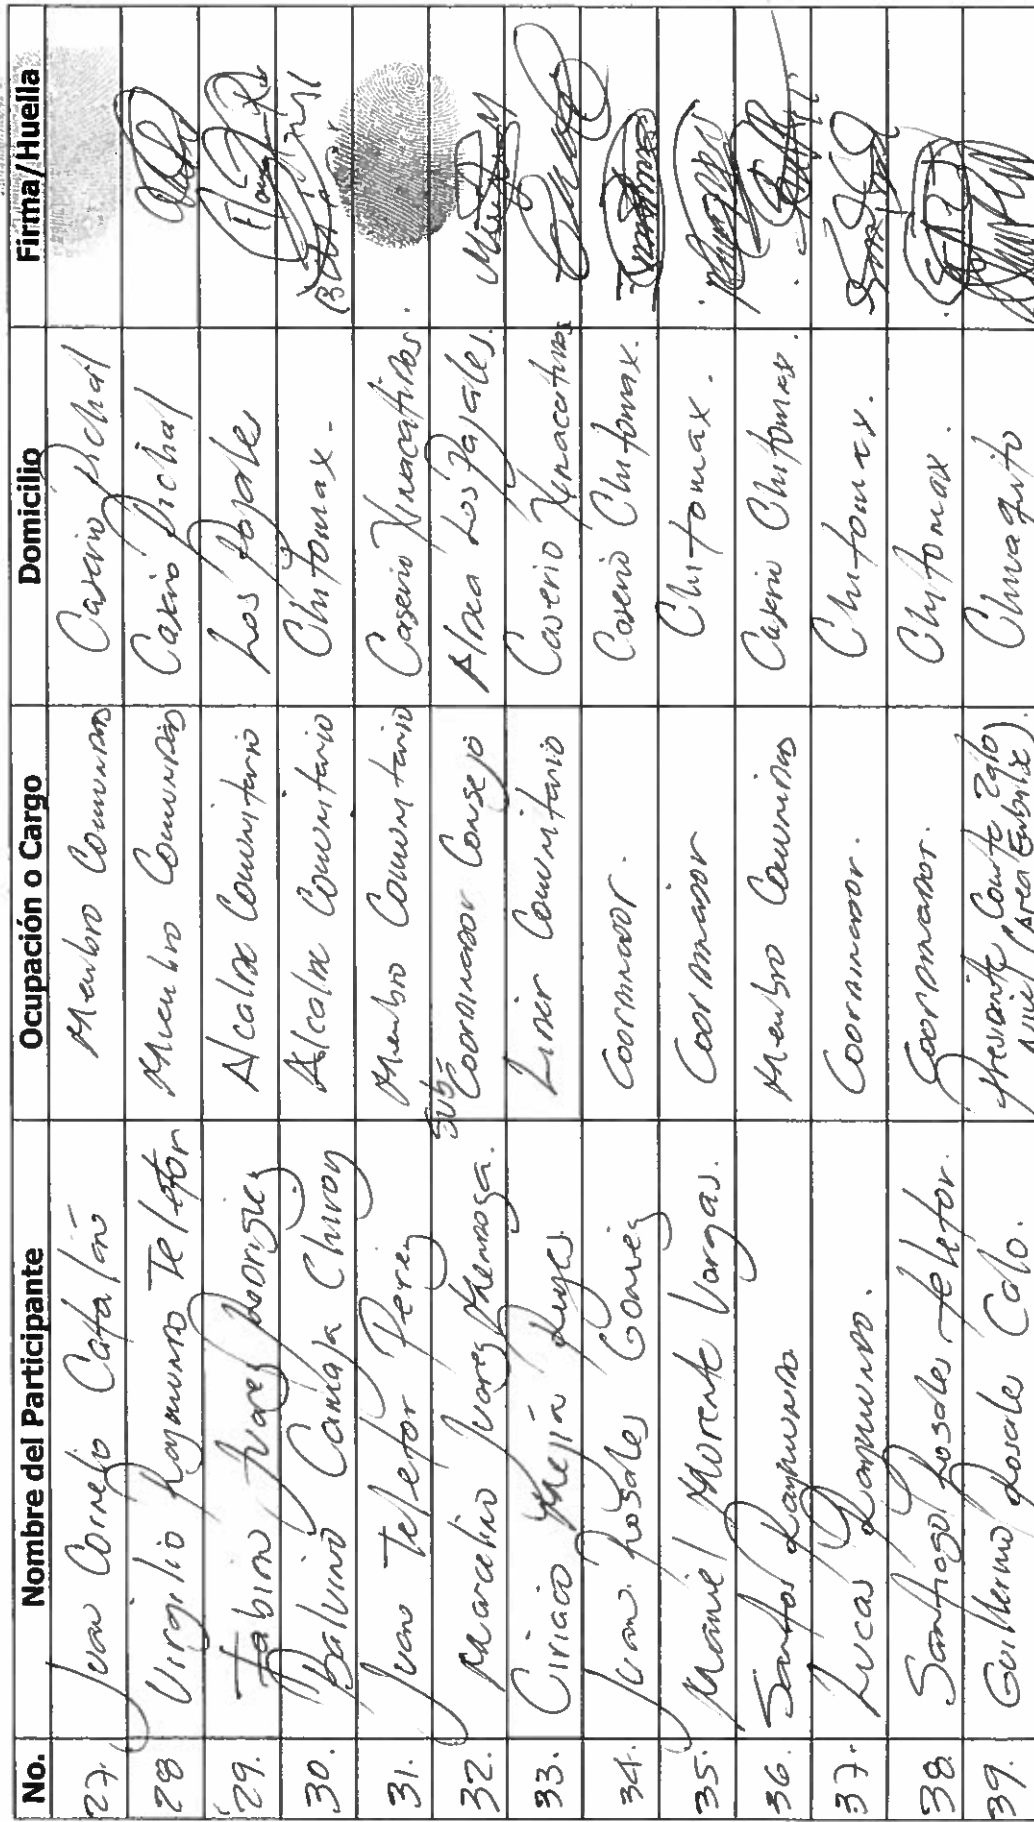 No. Nombre del Participante Ocupación o Cargo Domicilio Firma/Huella
27. Juan Cornelio Catalán Miembro Comunidad Caserio Pichal
28 Virgilio Raymundo Teletor Miembro Comunidad Caserio Pichal
29. Fabian Juarez Rodriguez Alcalde Comunitario Los Pajales
30. Balvino Camaja Chivoy Alcalde Comunitario Chitomax.
31. Juan Teletor Perez Miembro Comunitario Caserio Xinacatinas.
32. Marcelino Juarez Mendoza. Sub- Coordinador Consejo Aldea Los Pajales.
33. Ciriaco Mejía Reyes. Lider Comunitario Caserio Xinacatinas
34. Juan Rosales Gomez Coordinador. Caserio Chitomax.
35. Manuel Morente Vargas. Coordinador Chitomax.
36. Santos Raymundo. Miembro Comunidad Caserio Chitomax.
37. Lucas Raymundo. Coordinador. Chitomax.
38. Santiago Rosales Teletor. Coordinador. Chitomax.
39. Guillermo Rosales Calo. Presidente Comite (Area Embalse).